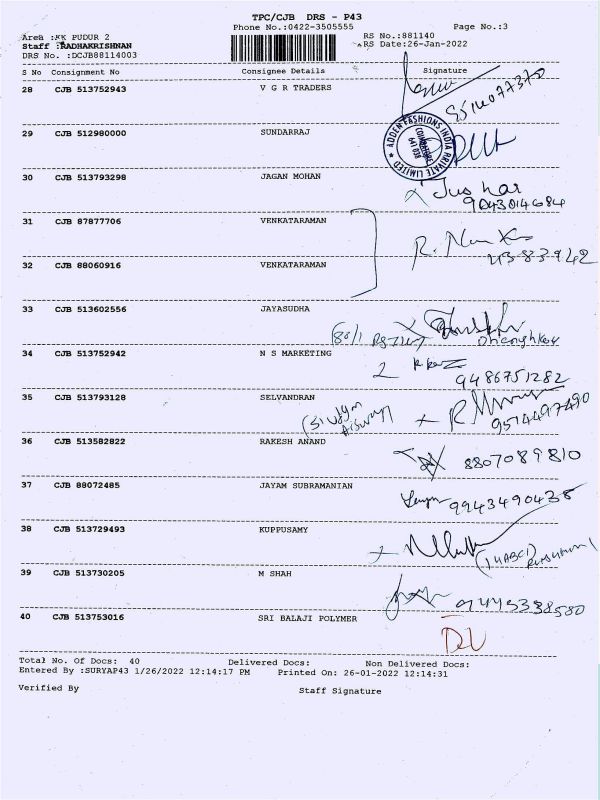 TPC/CJB DRS - P43
Phone No.:0422-3505555 Page No.:3
Area :KK PUDUR 2 RS No.:881140
Staff :RADHAKRISHNAN RS Date:26-Jan-2022
DRS No. :DCJB88114003
S No Consignment No Consignee Details Signature
28 CJB 513752943 V G R TRADERS
9514077370
29 CJB 512980000 SUNDARRAJ
ADDEN FASHIONS INDIA PRIVATE LIMITED
COIMBATORE
641 038
30 CJB 513793298 JAGAN MOHAN
9043014684
31 CJB 87877706 VENKATARAMAN
32 CJB 88060916 VENKATARAMAN
33 CJB 513602556 JAYASUDHA
34 CJB 513752942 N S MARKETING
9486751282
35 CJB 513793128 SELVANDRAN
9514497490
36 CJB 513582822 RAKESH ANAND
8807089810
37 CJB 88072485 JAYAM SUBRAMANIAN
9943490435
38 CJB 513729493 KUPPUSAMY
39 CJB 513730205 M SHAH
40 CJB 513753016 SRI BALAJI POLYMER
Total No. Of Docs: 40 Delivered Docs: Non Delivered Docs:
Entered By :SURYAP43 1/26/2022 12:14:17 PM Printed On: 26-01-2022 12:14:31
Verified By Staff Signature